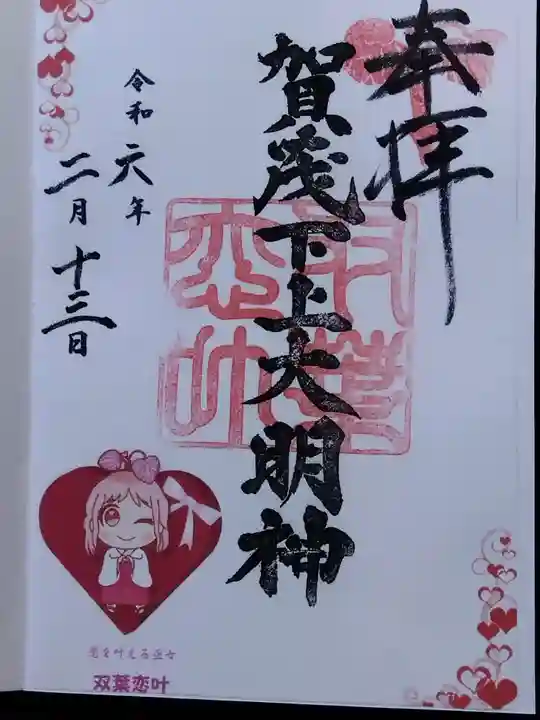 奉拝
賀茂下上大明神
双葉
恋叶
令和六年
二月十三日
恋を叶える巫女
双葉恋叶